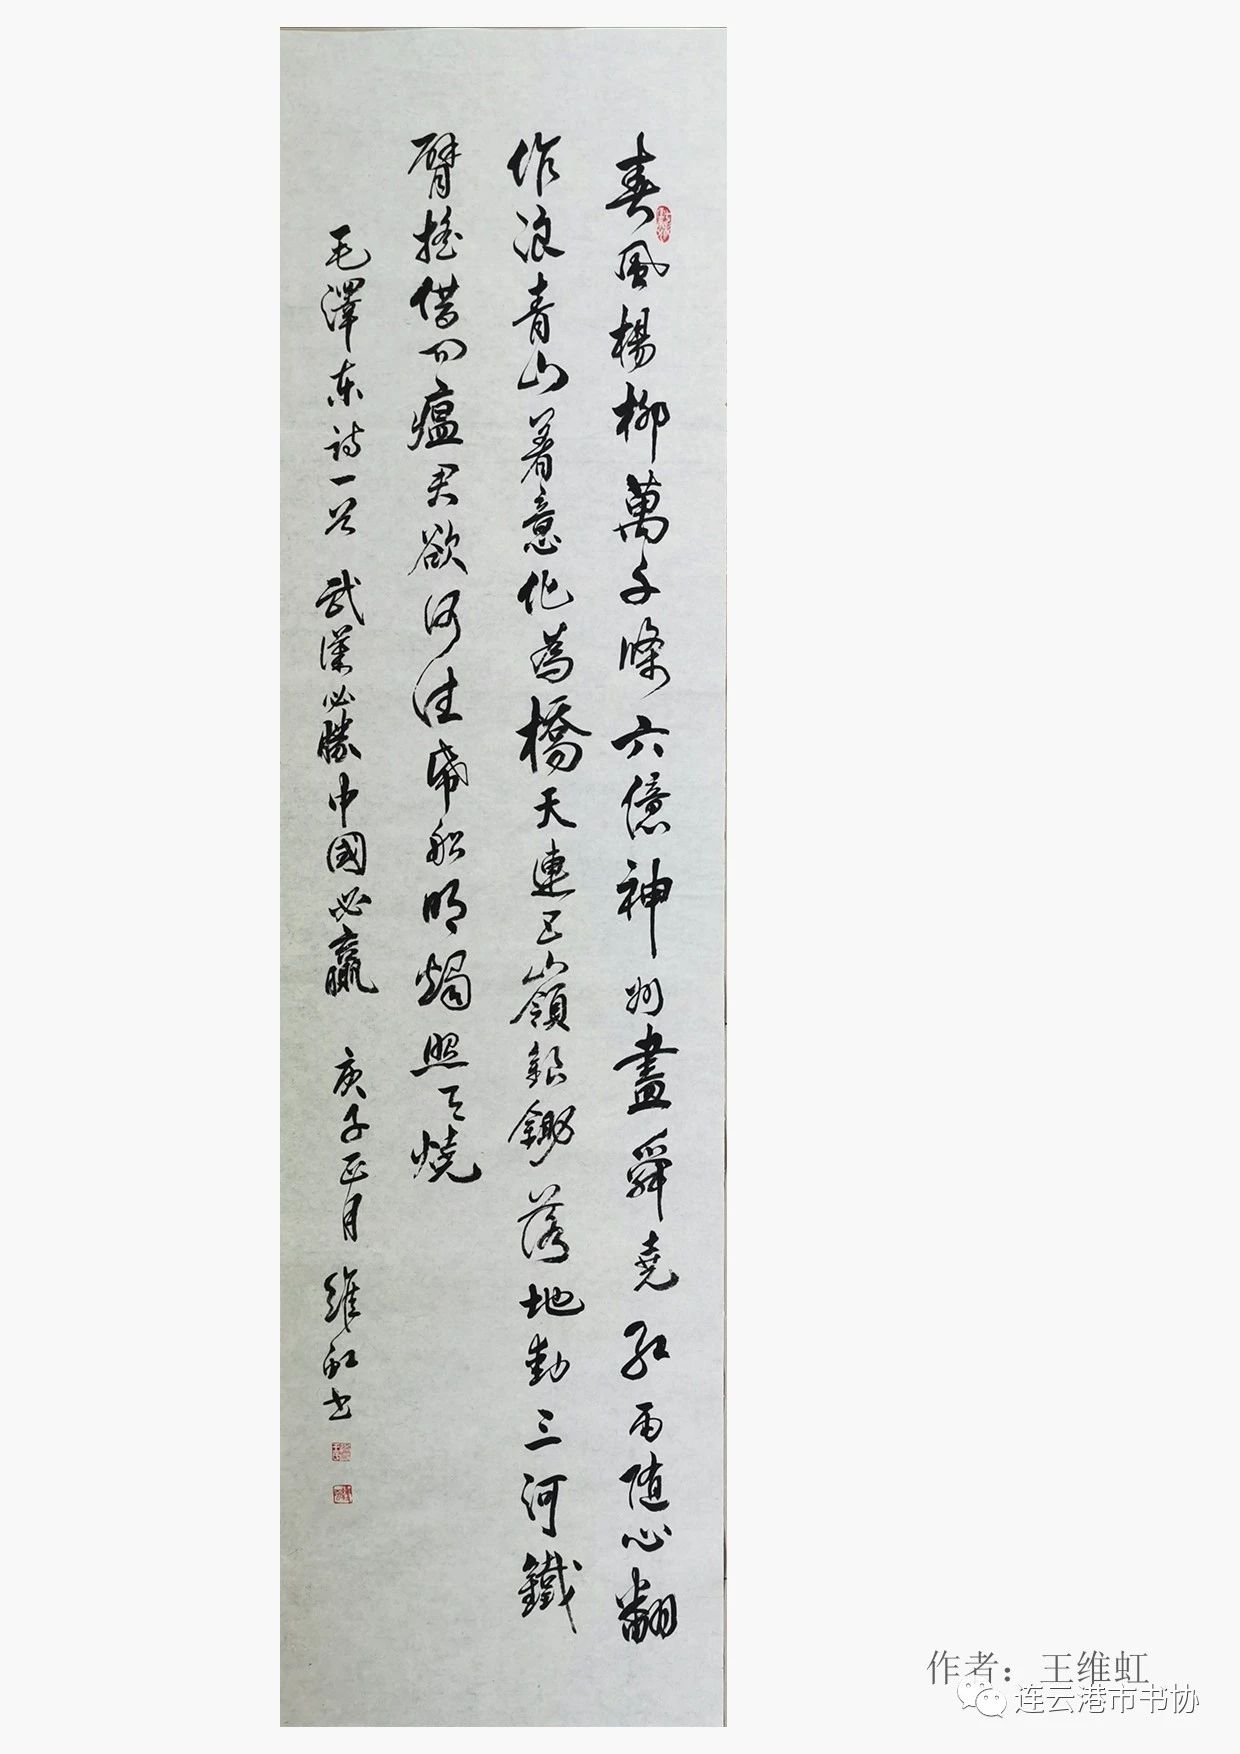 春風楊柳萬千條六億神州盡舜堯紅雨随心翻
作浪青山着意化為橋天連五嶺銀鋤落地動三河鐵
臂搖借问瘟君欲何往帋船明燭照天燒
毛澤东诗一首 武漢必勝中國必贏 庚子正月 維虹书
作者：王维虹
连云港市书协